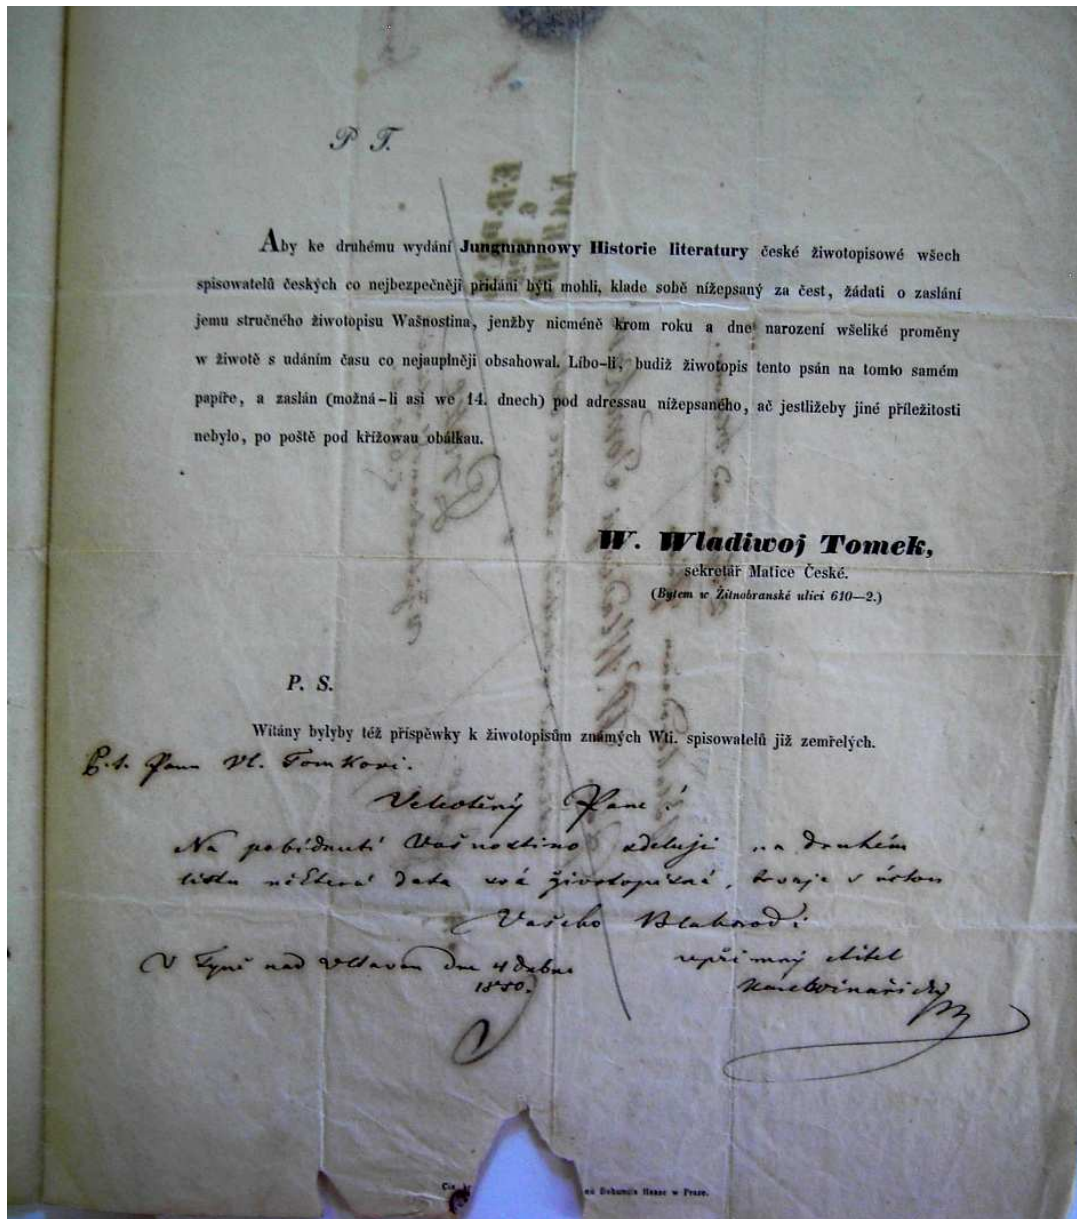 P. T.
Aby ke druhému wydání Jungmannowy Historie literatury české žiwotopisowé wšech
spisowatelů českých co nejbezpečněji přidáni býti mohli, klade sobě nížepsaný za čest, žádati o zaslání
jemu stručného žiwotopisu Wašnostina, jenžby nicméně krom roku a dne narození wšeliké proměny
w žiwotě s udáním času co nejauplněji obsahowal. Líbo-li, budiž žiwotopis tento psán na tomto samém
papíře, a zaslán (možná-li asi we 14. dnech) pod adressau nížepsaného, ač jestližeby jiné příležitosti
nebylo, po poště pod křížowau obálkau.
W. Wladiwoj Tomek,
sekretář Matice České.
(Bytem w Žitnobranské ulici 610—2.)
P. S.
Witány bylyby též příspěwky k žiwotopisům známých Wti. spisowatelů již zemřelých.
P. t. Panu Vl. Tomkovi.
Velectěný Pane!
Na pobídnutí Vašnostino sděluji na druhém
listu některá data svá životopisná, trvaje v úctou
Vašeho Blahorodí
V Týně nad Vltavou dne 4 dubna
1850.
upřímný ctitel
Karel Vinařický
Bohumila Haase w Praze.